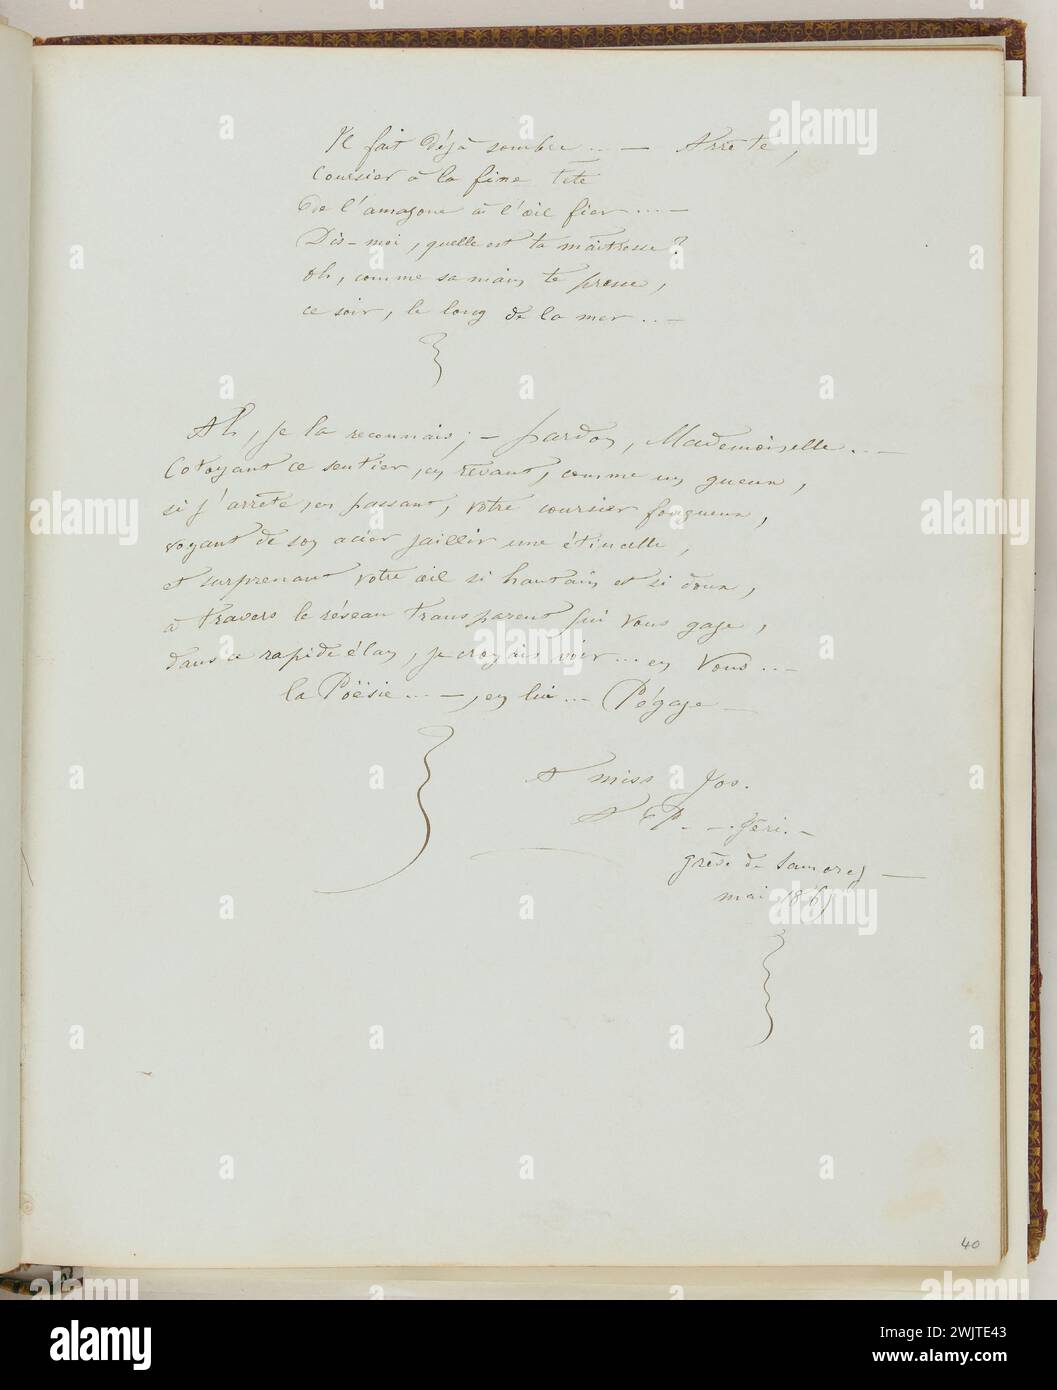 Il fait déjà sombre... — Arrête,
Coursier à la fine tête
De l'amazone à l'œil fier... —
Dis-moi, quelle est ta maîtresse?
Oh, comme sa main te presse,
ce soir, le long de la mer.. —
Ah, je la reconnais; — pardon, Mademoiselle... —
Cotoyant ce sentier, en rêvant, comme un gueux,
si j'arrête, en passant, votre coursier fougueux,
voyant de son acier jaillir une étincelle,
et surprenant votre œil si hautain et si doux,
à travers le réseau transparent qui vous gaze,
dans ce rapide élan, je croyais voir... en Vous... —
la Poësie... —, en lui... Pégaze —
A miss Jos.
grève de
mai
40
alamy
Image ID: 2WJTE43
www.alamy.com